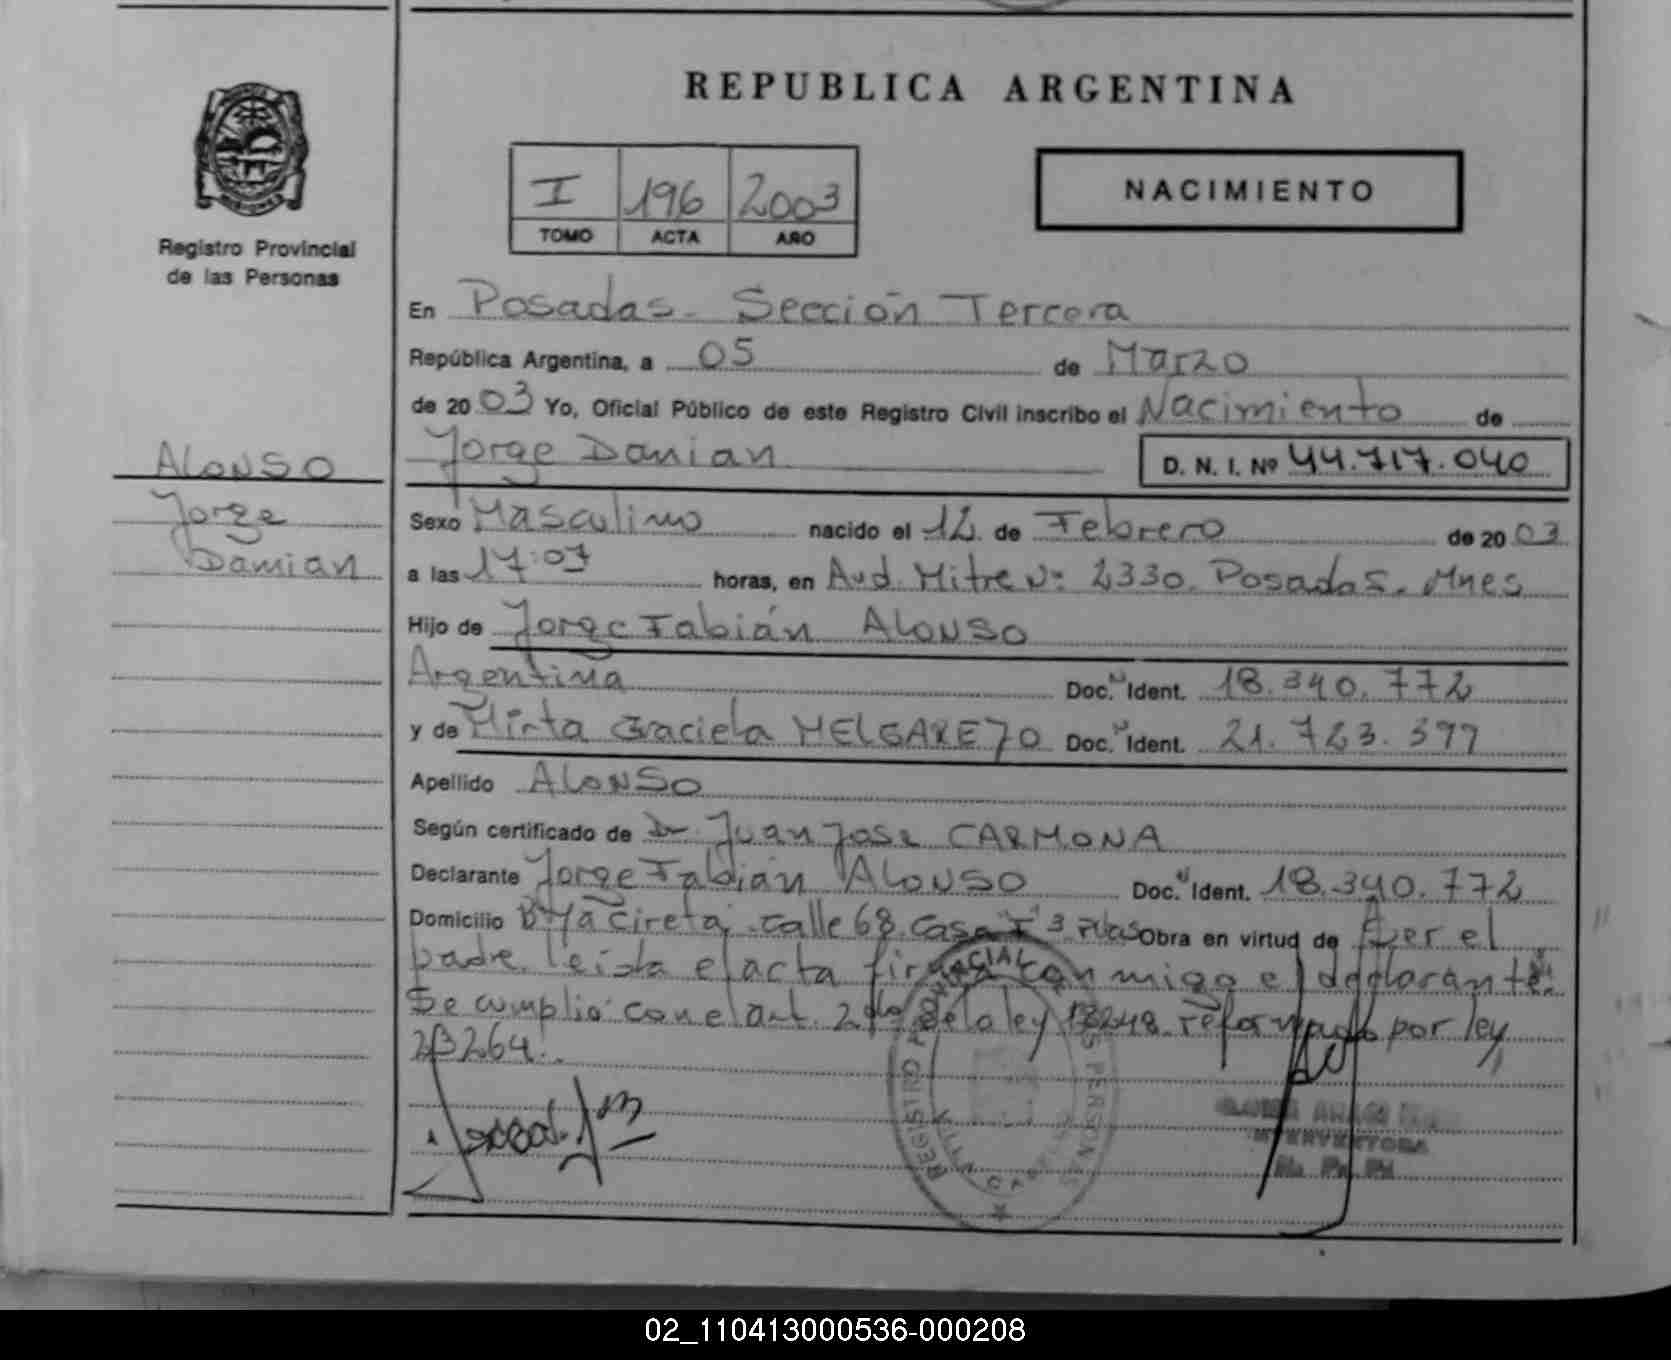 REPUBLICA ARGENTINA
I 196 2003
TOMO ACTA AÑO
NACIMIENTO
Registro Provincial
de las Personas
En Posadas. Sección Tercera
República Argentina, a 05 de Marzo
de 2003 Yo, Oficial Público de este Registro Civil inscribo el Nacimiento de
Jorge Damian D. N. I. Nº 44.717.040
ALONSO
Jorge
Damian
Sexo Masculino nacido el 12 de Febrero de 2003
a las 17:07 horas, en Avd. Mitre Nº 2330. Posadas. Mnes
Hijo de Jorge Fabián ALONSO
Argentina Doc. Ident. 18.340.772
y de Mirta Graciela MELGAREJO Doc. Ident. 21.723.397
Apellido ALONSO
Según certificado de Dr. Juan Jose CARMONA
Declarante Jorge Fabián ALONSO Doc. Ident. 18.340.772
Domicilio Bº Yacireta, calle 68. Casa 3 Obra en virtud de Ser el
padre. leida el acta firma conmigo el declarante.
Se cumplio con el art. 2do de la ley 13248 reformado por ley
23264.
REGISTRO PROVINCIAL PERSONAS
INTERVENTORA
02_110413000536-000208